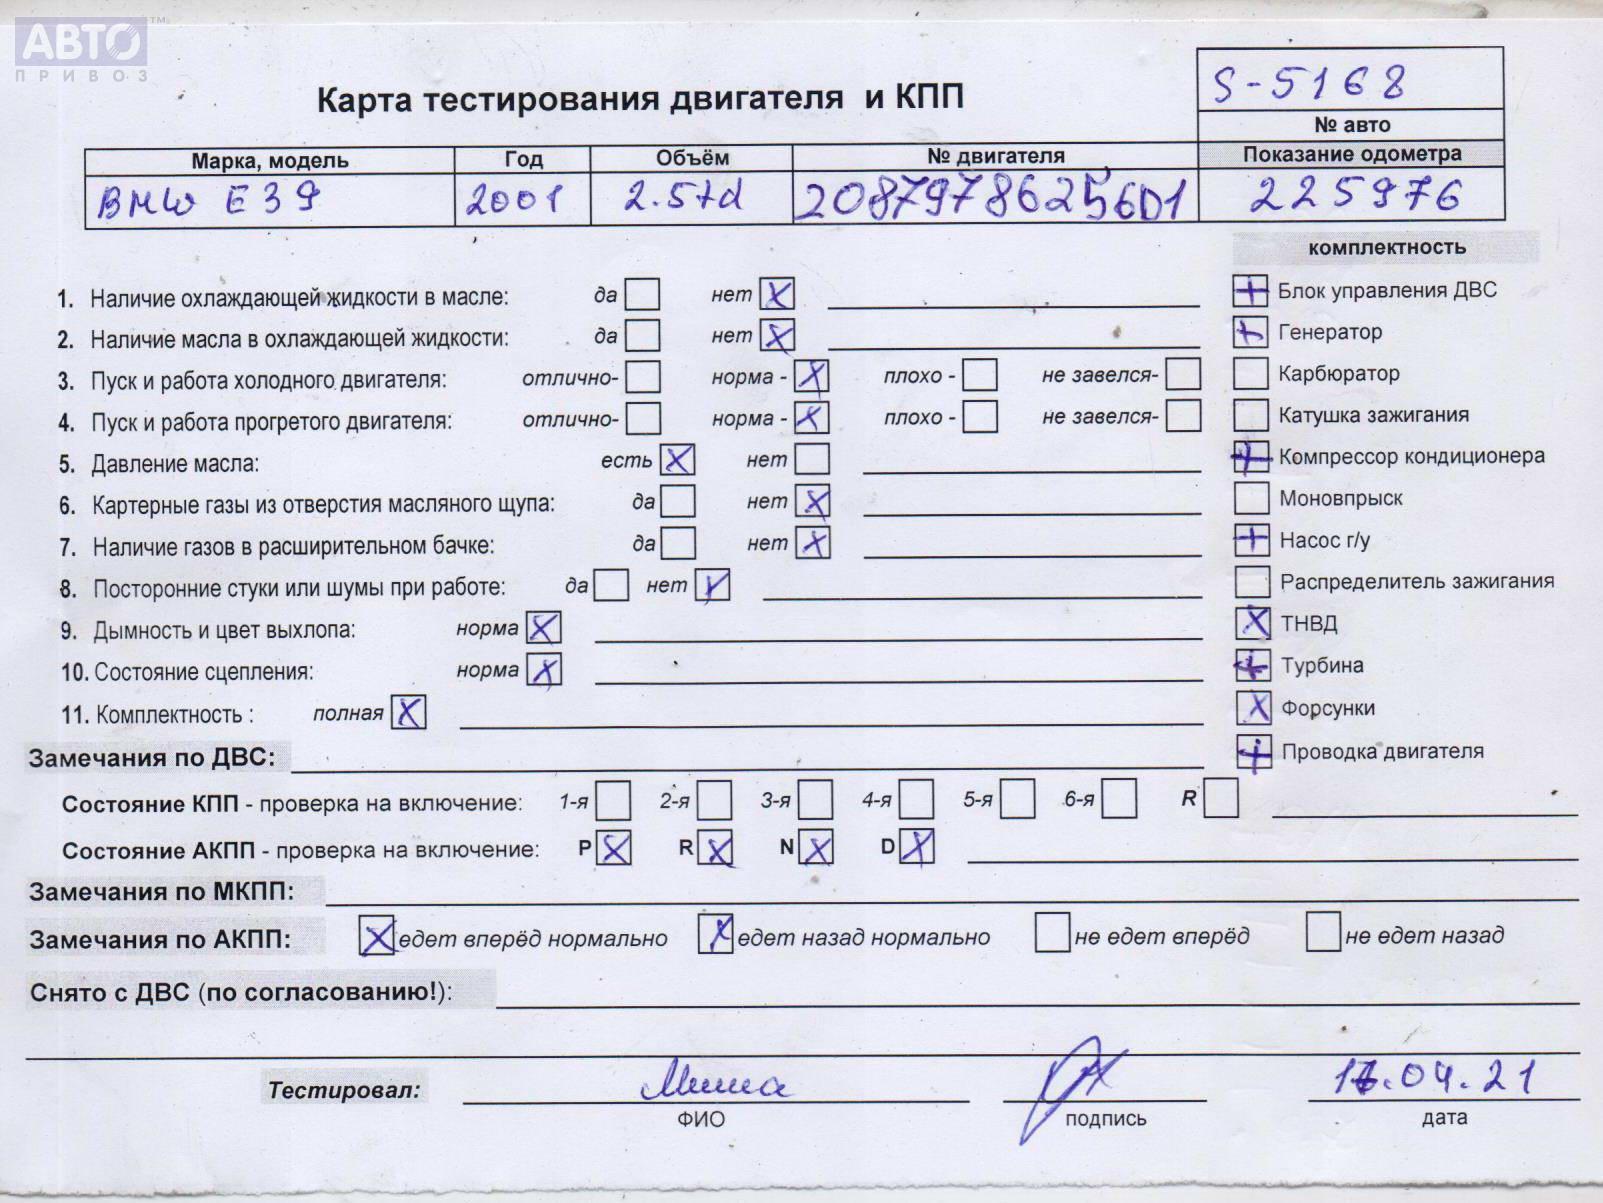 АВТО ™
ПРИВОЗ
Карта тестирования двигателя и КПП
S-5168
№ авто
Марка, модель Год Объём № двигателя Показание одометра
BMW E39 2001 2.5td 2087978625601 225976
комплектность
1. Наличие охлаждающей жидкости в масле: да нет X + Блок управления ДВС
2. Наличие масла в охлаждающей жидкости: да нет X + Генератор
3. Пуск и работа холодного двигателя: отлично- норма - X плохо - не завелся- Карбюратор
4. Пуск и работа прогретого двигателя: отлично- норма - X плохо - не завелся- Катушка зажигания
5. Давление масла: есть X нет + Компрессор кондиционера
6. Картерные газы из отверстия масляного щупа: да нет X Моновпрыск
7. Наличие газов в расширительном бачке: да нет X + Насос г/у
8. Посторонние стуки или шумы при работе: да нет X Распределитель зажигания
9. Дымность и цвет выхлопа: норма X X ТНВД
10. Состояние сцепления: норма X + Турбина
11. Комплектность : полная X X Форсунки
Замечания по ДВС: + Проводка двигателя
Состояние КПП - проверка на включение: 1-я 2-я 3-я 4-я 5-я 6-я R
Состояние АКПП - проверка на включение: P X R X N X D X
Замечания по МКПП:
Замечания по АКПП: X едет вперёд нормально X едет назад нормально не едет вперёд не едет назад
Снято с ДВС (по согласованию!):
Тестировал: Миша .04.21
ФИО подпись дата